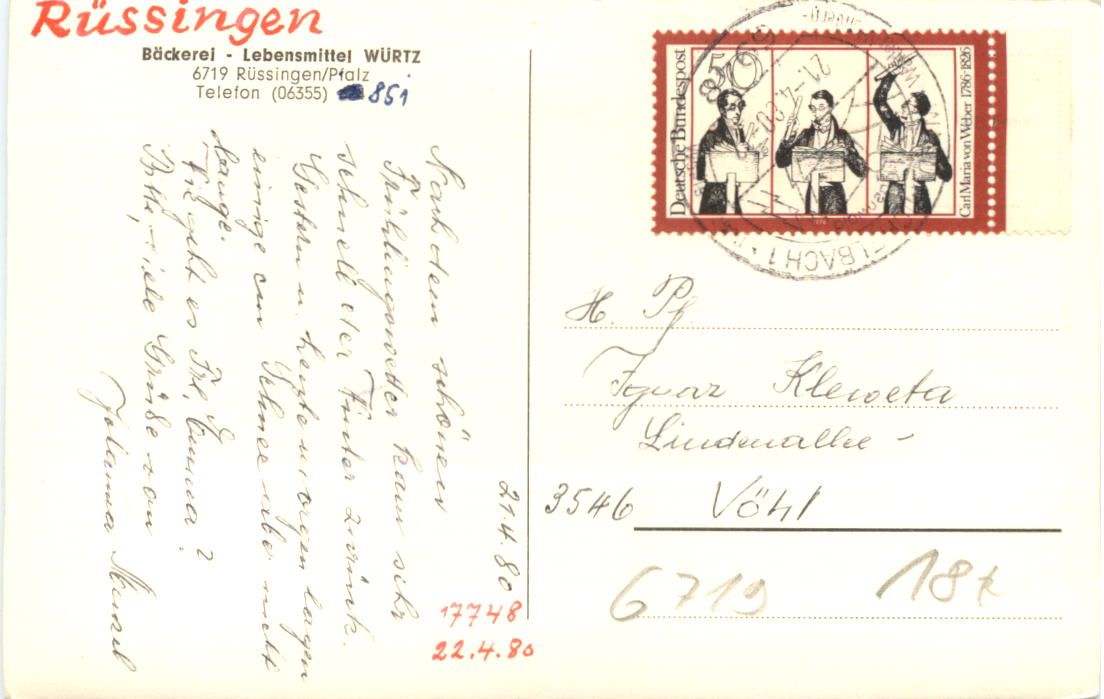 Rüssingen
Bäckerei - Lebensmittel WÜRTZ
6719 Rüssingen/Pfalz
Telefon (06355) 851
21.4.80
Nach dem schönen
Frühlingswetter kam sehr
schnell der Winter zurück.
Gestern u. heute morgen lagen
einige cm Schnee aber nicht
lange.
Wie geht es Frl. Emma?
Bitte, viele Grüße von
Johanna Menzel
17748
22.4.80
Deutsche Bundespost
50
Carl Maria von Weber 1786-1826
1976
21.-4.80
ELBACH 1
H. Pf
Ignaz Kleweta
Lindenallee -
3546 Vöhl
6719 18